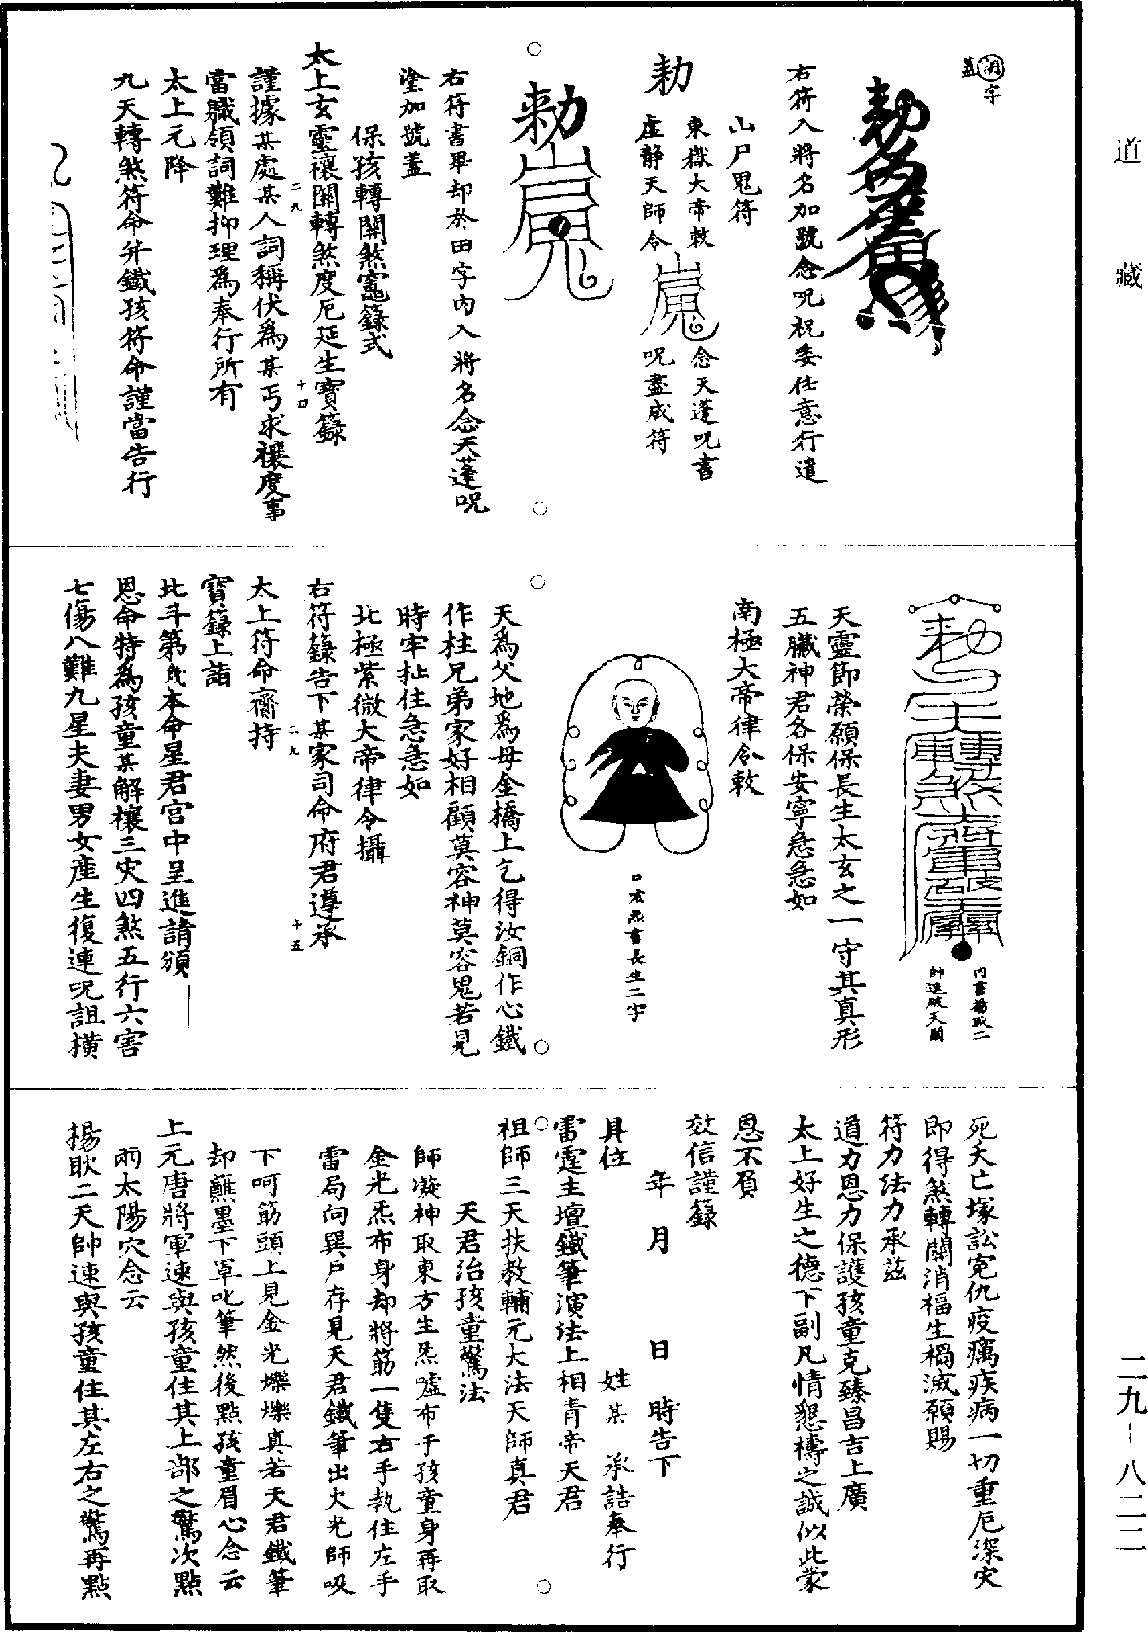 道藏
二九-八二二
字
蓋
右符入將名加號念呪祝委任意行遣
山尸鬼符
勅
東嶽大帝敕
虛靜天師令
念天蓬呪書
呪盡成符
勅
右符書畢却於田字內入將名念天蓬呪
塗加號蓋
保孩轉關煞竈籙式
太上玄靈禳關轉煞度厄延生寶籙
謹據某處某人詞稱伏爲某丐求禳度事
二九
十四
當職領詞難抑理爲奉行所有
太上元降
九天轉煞符命并鐵孩符命謹當告行
內書楊耿二
帥速破天關
天靈節榮願保長生太玄之一守其真形
五臟神君各保安寧急急如
南極大帝律令敕
口吹炁書長生二字
天爲父地爲母金橋上乞得汝銅作心鐵
作柱兄弟家好相顧莫容神莫容鬼若見
時牢扯住急急如
北極紫微大帝律令攝
右符籙告下某家司命府君遵承
二九
十五
太上符命齎持
寶籙上詣
北斗第幾本命星君宮中呈進請頒
恩命特爲孩童某解禳三災四煞五行六害
七傷八難九星夫妻男女產生復連呪詛橫
死夭亡塚訟冤仇疫癘疾病一切重厄深災
即得煞轉關消福生禍滅願賜
符力法力承茲
道力恩力保護孩童克臻昌吉上廣
太上好生之德下副凡情懇禱之誠似此蒙
恩不負
效信謹籙
年 月 日 時告下
具位 姓某 承誥奉行
雷霆主壇鐵筆演法上相青帝天君
祖師三天扶教輔元大法天師真君
天君治孩童驚法
師凝神取東方生炁噓布于孩童身再取
金光炁布身却將筯一隻右手執住左手
雷局向巽戶存見天君鐵筆出火光師吸
下呵筯頭上見金光爍爍真若天君鐵筆
却蘸墨下罩叱筆然後點孩童眉心念云
上元唐將軍速與孩童住其上部之驚次點
兩太陽穴念云
楊耿二天帥速與孩童住其左右之驚再點